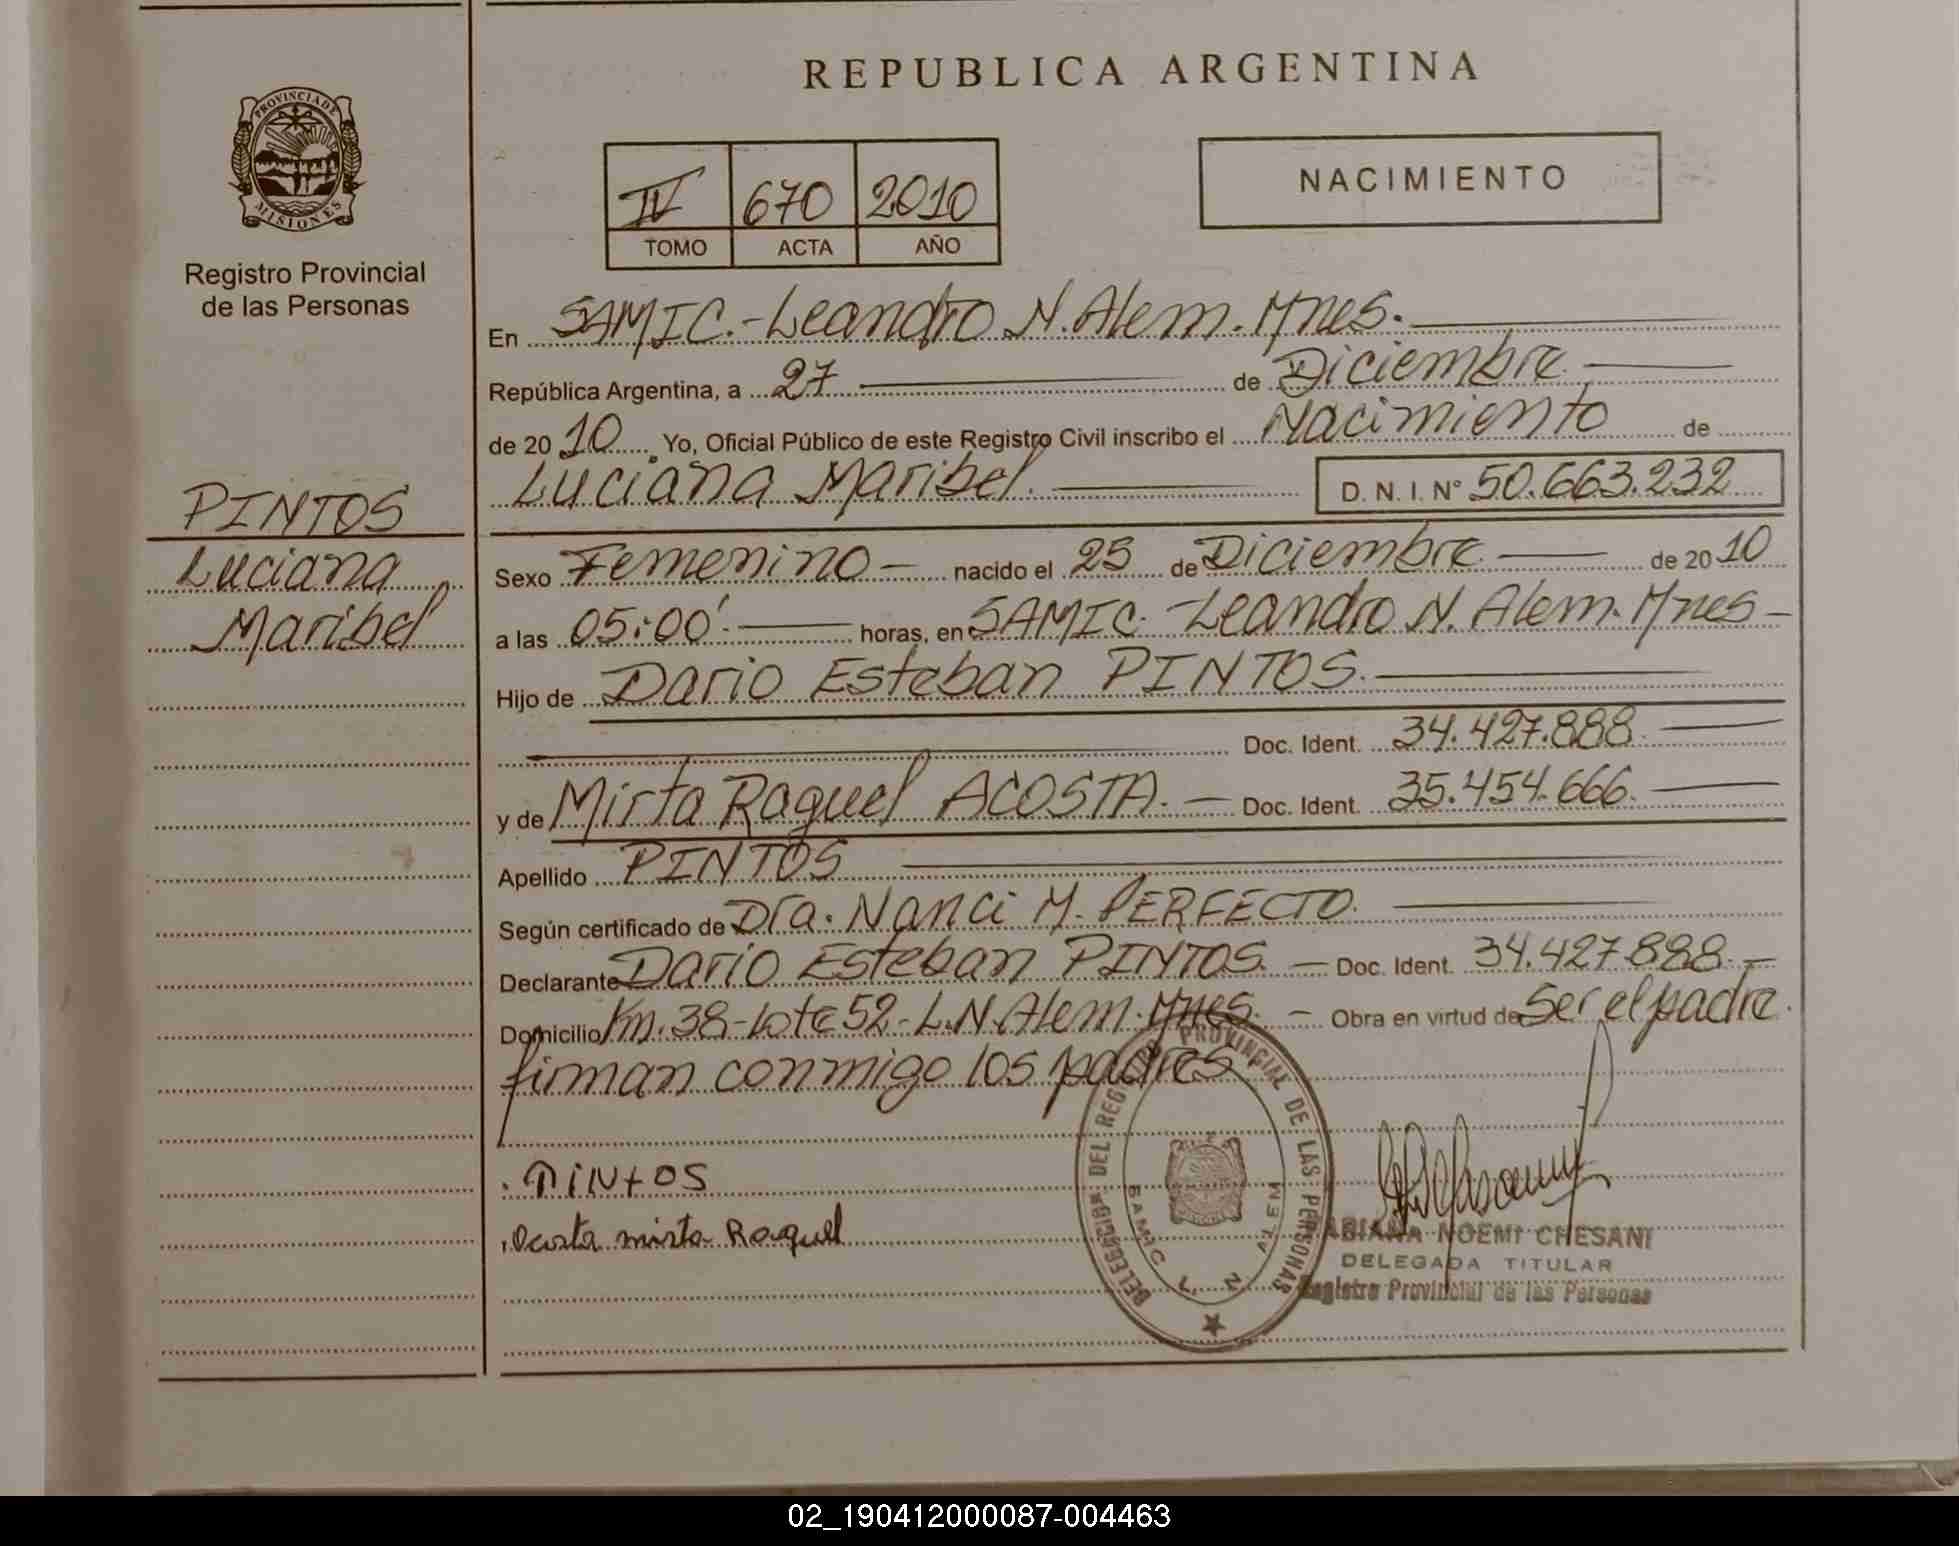 REPUBLICA ARGENTINA
PROVINCIA DE
MISIONES
Registro Provincial
de las Personas
IV 670 2010
TOMO ACTA AÑO
NACIMIENTO
En SAMIC.-Leandro N. Alem. Mnes.
República Argentina, a 27 de Diciembre
de 2010. Yo, Oficial Público de este Registro Civil inscribo el Nacimiento de
Luciana Maribel. D. N. I. Nº 50.663.232
PINTOS
Luciana
Maribel
Sexo Femenino - nacido el 25 de Diciembre de 2010
a las 05:00'. horas, en SAMIC. -Leandro N. Alem. Mnes-
Hijo de Dario Esteban PINTOS.
Doc. Ident. 34.427.888.
y de Mirta Raquel ACOSTA. - Doc. Ident. 35.454.666.
Apellido PINTOS
Según certificado de Dra. Nanci M. PERFECTO.
Declarante Dario Esteban PINTOS. - Doc. Ident. 34.427.888.-
Domicilio Km. 38-Lote 52-L.N.Alem. Mnes. - Obra en virtud de Ser el padre.
firman conmigo los padres
PINTOS
Acosta mirta Raquel
DELEGACION DEL REGISTRO PROVINCIAL DE LAS PERSONAS
SAMIC L. N. ALEM
FABIANA NOEMI CHESANI
DELEGADA TITULAR
Registro Provincial de las Personas
02_190412000087-004463